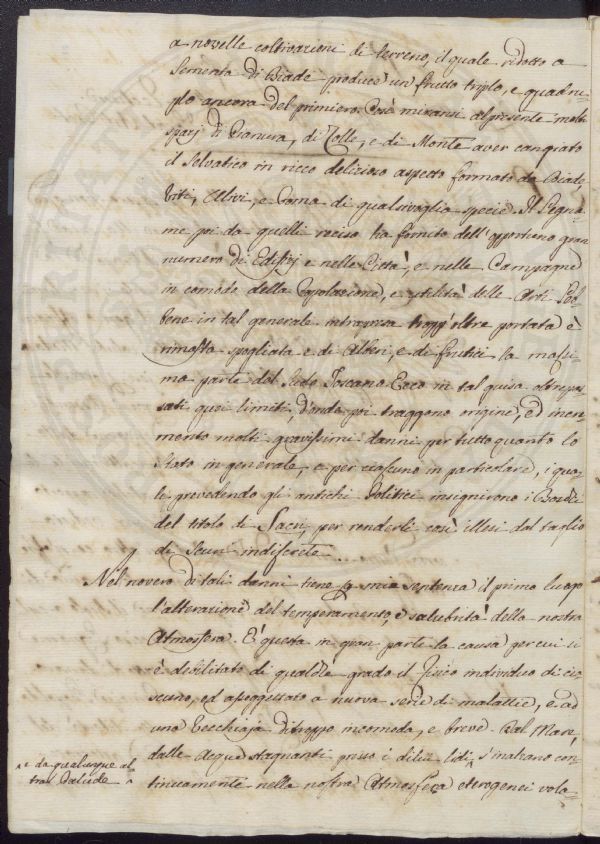 a novelle coltivazioni di terreno, il quale ridotto a
Sementa di Biade produce un frutto triplo, e quadru-
plo ancora del primiero. Così miransi al presente molti
spazj di Pianura, di Colle, e di Monte aver cangiato
il Selvatico in ricco delizioso aspetto formato da Biade
Viti, Ulivi, e Poma di qualsivoglia specie. Il Legna-
me poi da quelli reciso ha fornito dell'opportuno gran
numero di Edifizj e nelle Città, e nelle Campagne
in comodo della Popolazione, e utilità delle Arti. Seb-
bene in tal generale intrapresa tropp'oltre portata è
rimasta spogliata e di Alberi, e di frutici la massi-
ma parte del Suolo Toscano. Ecco in tal guisa oltrepas-
sati quei limiti, d'onde poi traggono origine, ed incre-
mento molti gravissimi danni per tutto quanto lo
Stato in generale, e per ciascuno in particolare, i qua-
li prevedendo gli antichi Politici insignirono i Boschi
del titolo di Sacri, per renderli così illesi dal taglio
di Scuri indiscrete....
Nel novero di tali danni tiene a mia sentenza il primo luogo
l'alterazione del temperamento, e salubrità della nostra
Atmosfera. E' questa in gran parte la causa per cui si
è debilitato di qualche grado il fisico individuo di cia-
scuno, ed assoggettato a nuova serie di malattie, e ad
una Vecchiaja di troppo incomoda, e breve. Dal Mare,
dalle Acque stagnanti presso i di lui lidi, ^ s'inalzano con-
^ e da qualunque al-
tra Palude ^
tinuamente nella nostra Atmosfera eterogenei vola-